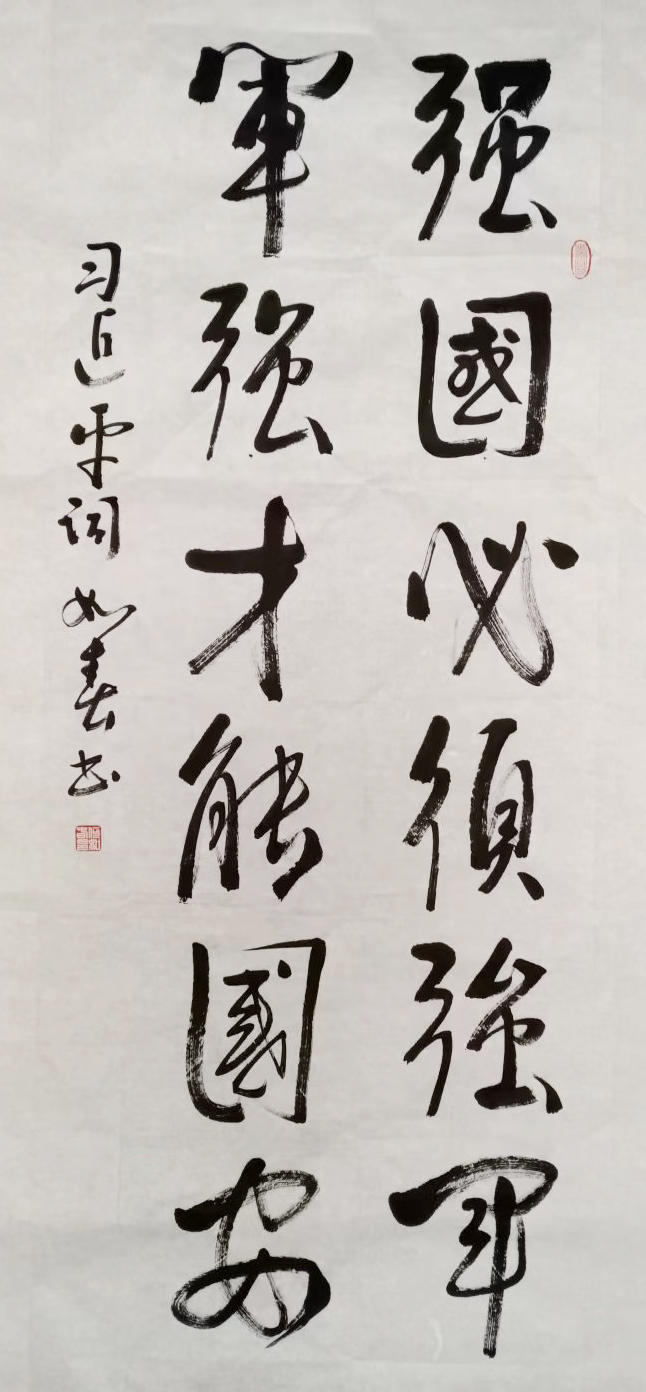 强國必須強軍
軍強才能國安
习近平词 如春书